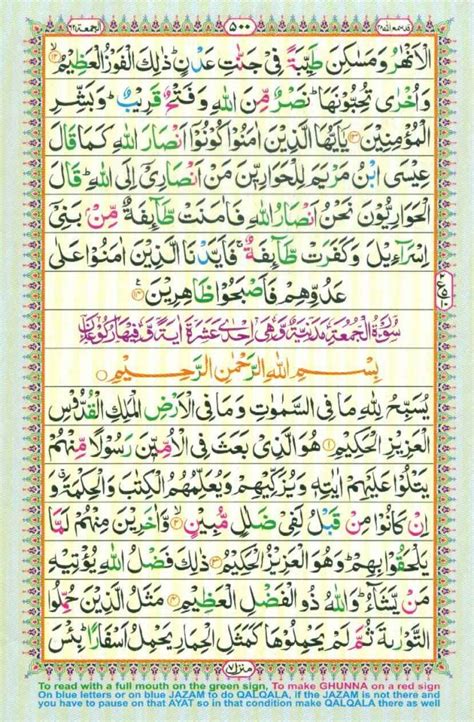 الجمعة ٦٢
٥٠٠
قد سمع الله ٢٨
الْاَنْهٰرُ وَمَسٰكِنَ طَيِّبَةً فِيْ جَنّٰتِ عَدْنٍ ؕ ذٰلِكَ الْفَوْزُ الْعَظِيْمُ ۙ﴿۱۲﴾
وَاُخْرٰى تُحِبُّوْنَهَا ؕ نَصْرٌ مِّنَ اللّٰهِ وَفَتْحٌ قَرِيْبٌ ؕ وَبَشِّرِ
الْمُؤْمِنِيْنَ ﴿۱۳﴾ يٰۤاَيُّهَا الَّذِيْنَ اٰمَنُوْا كُوْنُوْۤا اَنْصَارَ اللّٰهِ كَمَا قَالَ
عِيْسَى ابْنُ مَرْيَمَ لِلْحَوَارِيّٖنَ مَنْ اَنْصَارِيْۤ اِلَى اللّٰهِ ؕ قَالَ
الْحَوَارِيُّوْنَ نَحْنُ اَنْصَارُ اللّٰهِ فَاٰمَنَتْ طَّآئِفَةٌ مِّنْۢ بَنِيْۤ
اِسْرَآءِيْلَ وَكَفَرَتْ طَّآئِفَةٌ ۚ فَاَيَّدْنَا الَّذِيْنَ اٰمَنُوْا عَلٰى
عَدُوِّهِمْ فَاَصْبَحُوْا ظٰهِرِيْنَ ﴿۱۴﴾
سُوْرَةُ الْجُمُعَةِ مَدَنِيَّةٌ وَّهِيَ اِحْدٰى عَشَرَةَ اٰيَةً وَّفِيْهَا رُكُوْعَانِ
بِسْمِ اللّٰهِ الرَّحْمٰنِ الرَّحِيْمِ
يُسَبِّحُ لِلّٰهِ مَا فِي السَّمٰوٰتِ وَمَا فِي الْاَرْضِ الْمَلِكِ الْقُدُّوْسِ
الْعَزِيْزِ الْحَكِيْمِ ﴿۱﴾ هُوَ الَّذِيْ بَعَثَ فِي الْاُمِّيّٖنَ رَسُوْلًا مِّنْهُمْ
يَتْلُوْا عَلَيْهِمْ اٰيٰتِهٖ وَيُزَكِّيْهِمْ وَيُعَلِّمُهُمُ الْكِتٰبَ وَالْحِكْمَةَ ۗ وَ
اِنْ كَانُوْا مِنْ قَبْلُ لَفِيْ ضَلٰلٍ مُّبِيْنٍ ۙ﴿۲﴾ وَّاٰخَرِيْنَ مِنْهُمْ لَمَّا
يَلْحَقُوْا بِهِمْ ؕ وَهُوَ الْعَزِيْزُ الْحَكِيْمُ ﴿۳﴾ ذٰلِكَ فَضْلُ اللّٰهِ يُؤْتِيْهِ
مَنْ يَّشَآءُ ؕ وَاللّٰهُ ذُو الْفَضْلِ الْعَظِيْمِ ﴿۴﴾ مَثَلُ الَّذِيْنَ حُمِّلُوا
التَّوْرٰىةَ ثُمَّ لَمْ يَحْمِلُوْهَا كَمَثَلِ الْحِمَارِ يَحْمِلُ اَسْفَارًا ؕ بِئْسَ
منزل ٧
To read with a full mouth on the green sign, To make GHUNNA on a red sign
On blue letters or on blue JAZAM to do QALQALA, if the JAZAM is not there and
you have to pause on that AYAT so in that condition make QALQALA there as well